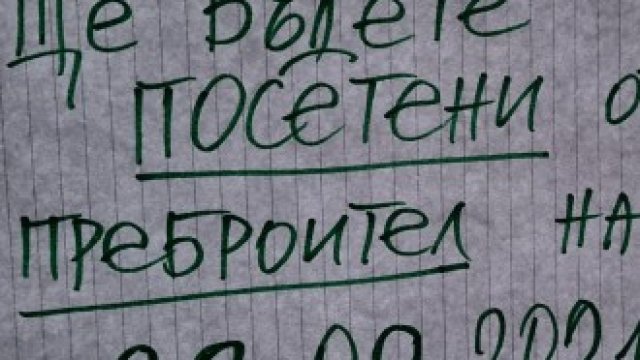 ще бъдете
посетени о
преброител на
09.202